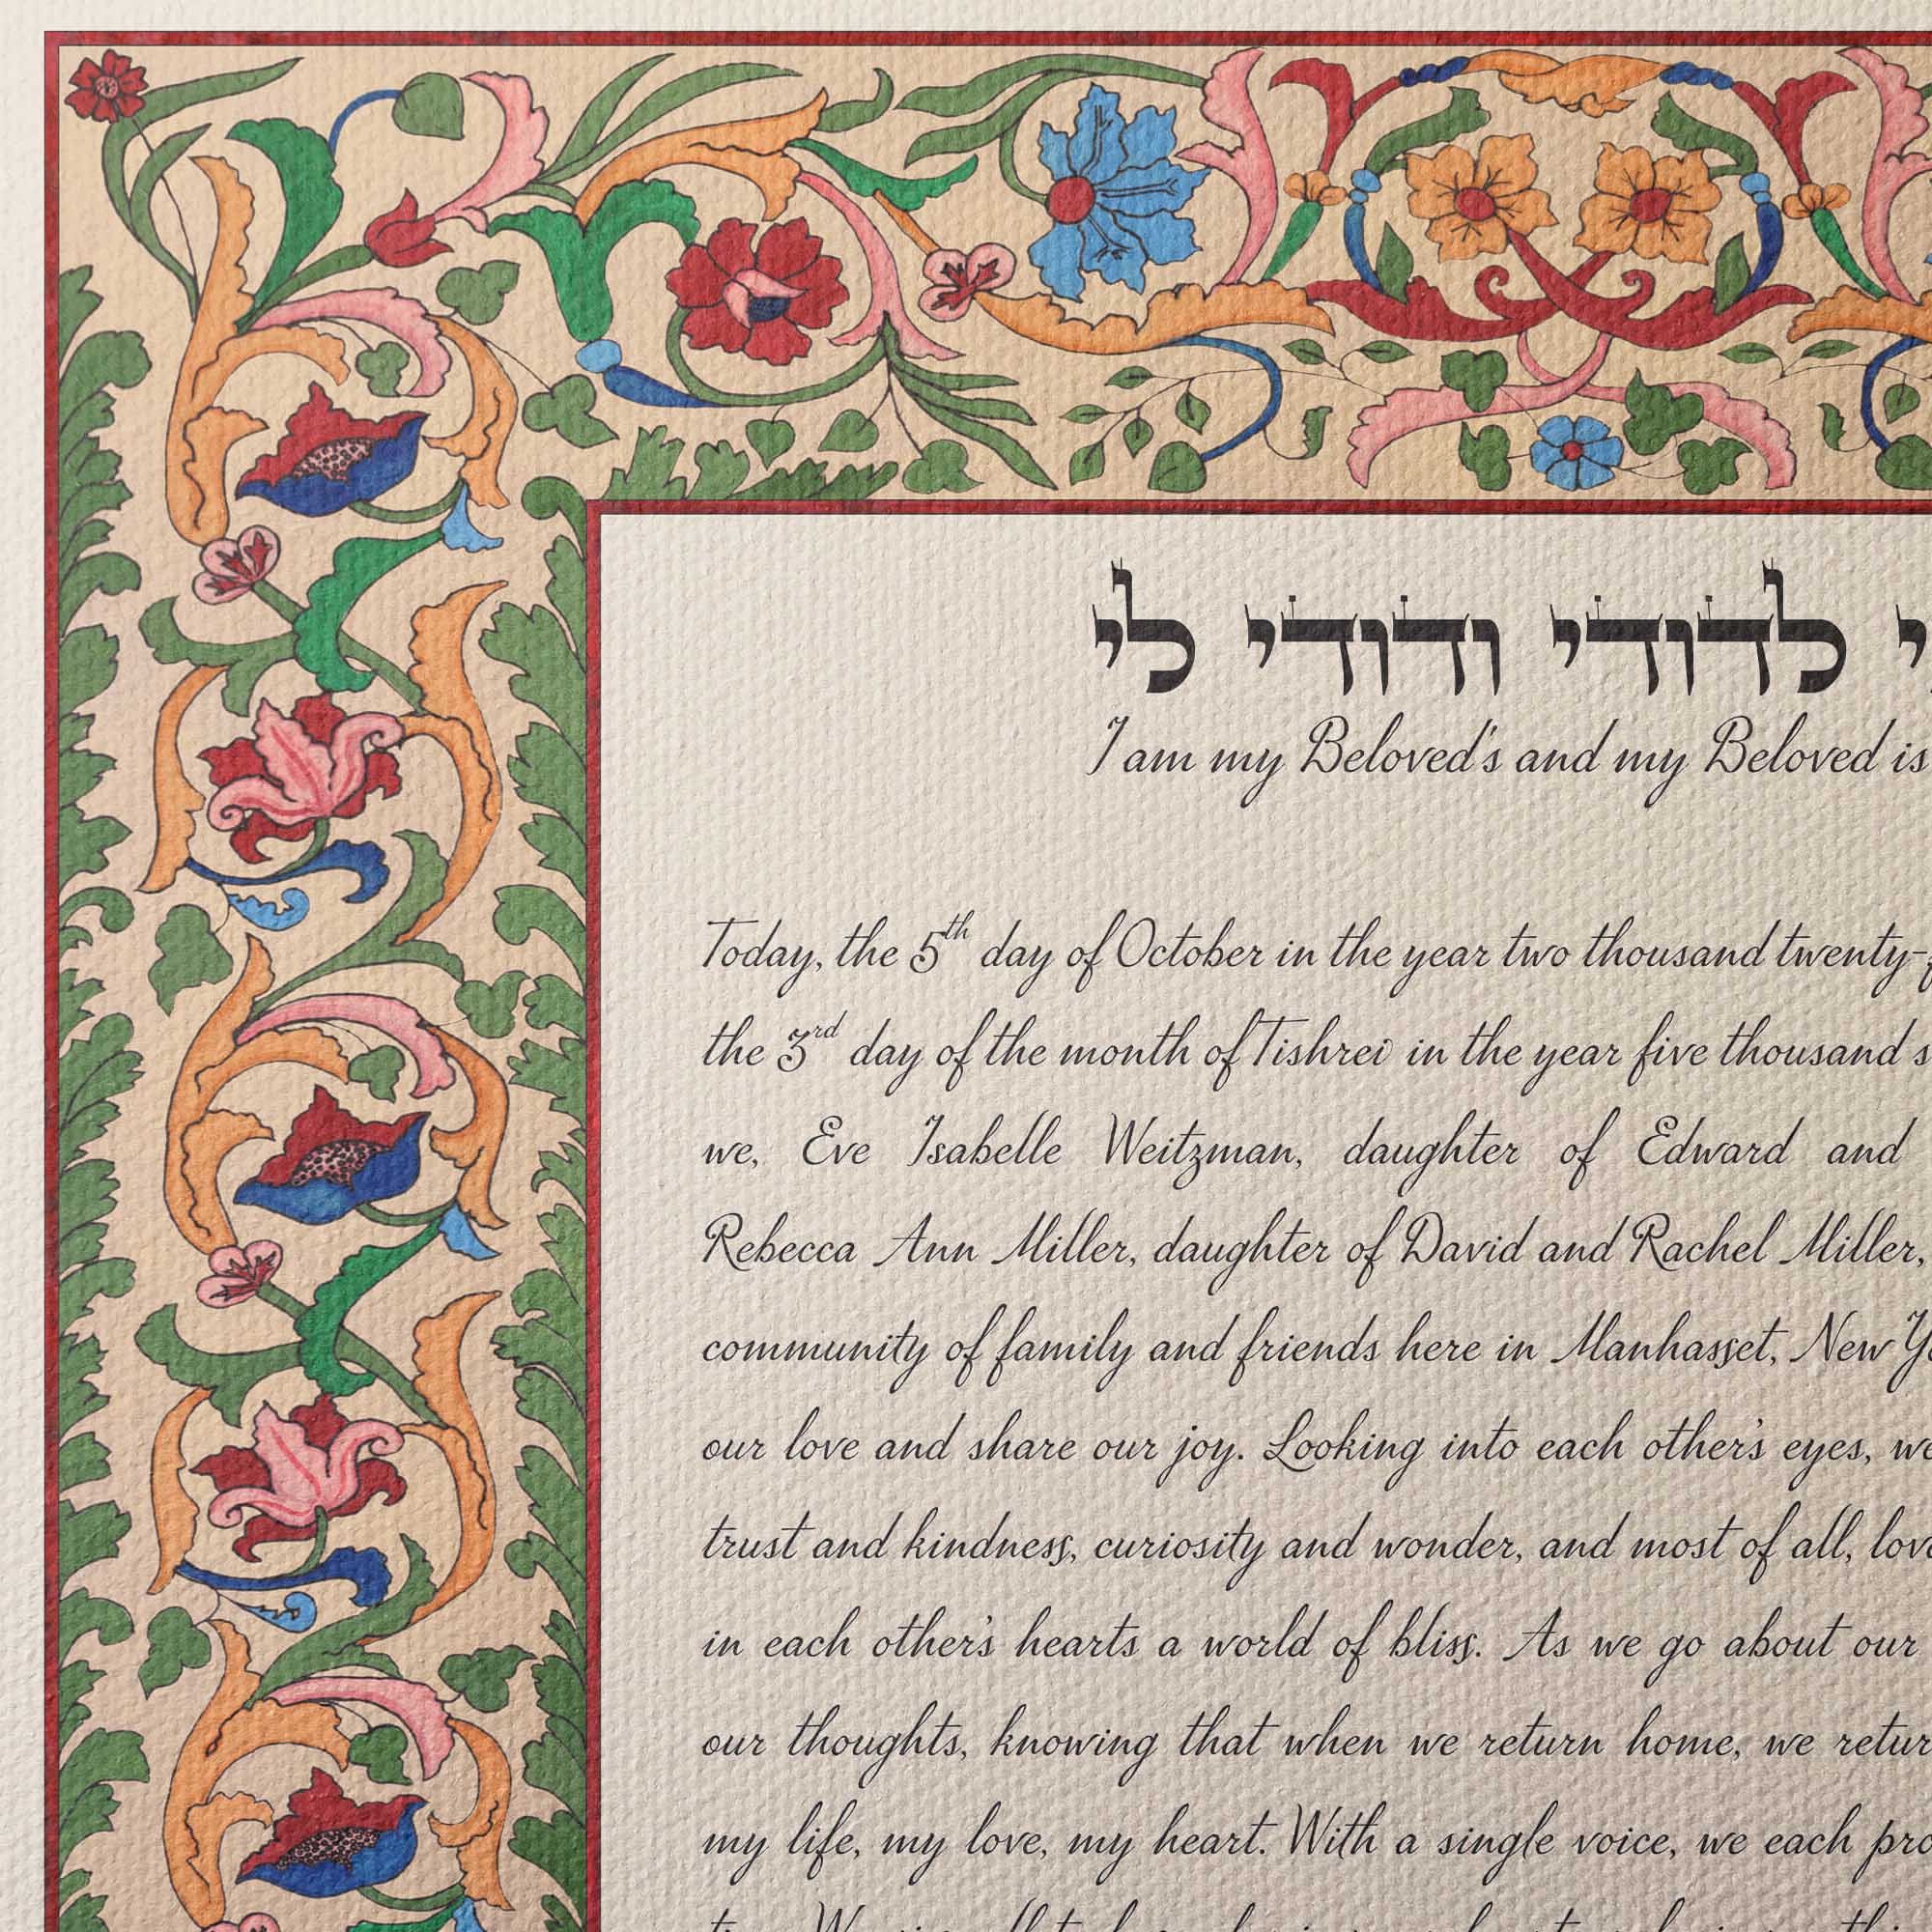 י לדודי ודודי לי
I am my Beloved's and my Beloved is
Today, the 5th day of October in the year two thousand twenty-
the 3rd day of the month of Tishrei in the year five thousand s
we, Eve Isabelle Weitzman, daughter of Edward and
Rebecca Ann Miller, daughter of David and Rachel Miller,
community of family and friends here in Manhasset, New Yo
our love and share our joy. Looking into each other's eyes, we
trust and kindness, curiosity and wonder, and most of all, love
in each other's hearts a world of bliss. As we go about our
our thoughts, knowing that when we return home, we retur
my life, my love, my heart. With a single voice, we each pro